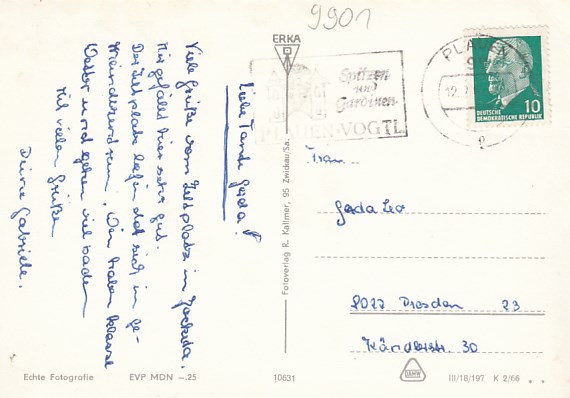 9901
ERKA
Spitzen
und
Gardinen
PLAUEN · VOGTL
PLAUEN
12.7
10
DEUTSCHE
DEMOKRATISCHE REPUBLIK
Liebe Tante Gerda!
Viele Grüße vom Zeltplatz in
Mir gefällt hier sehr gut.
Der Zeltplatz befindet sich in
Wir haben klasse
Wetter und gehen viel baden
Mit vielen Grüßen
Deine Gabriele.
Fotoverlag R. Kallmer, 95 Zwickau/Sa.
Frau...
Gerda Leo
8022 Dresden 23
Kändlerstr. 30
Echte Fotografie EVP MDN –.25 10631 III/18/197 K 2/66